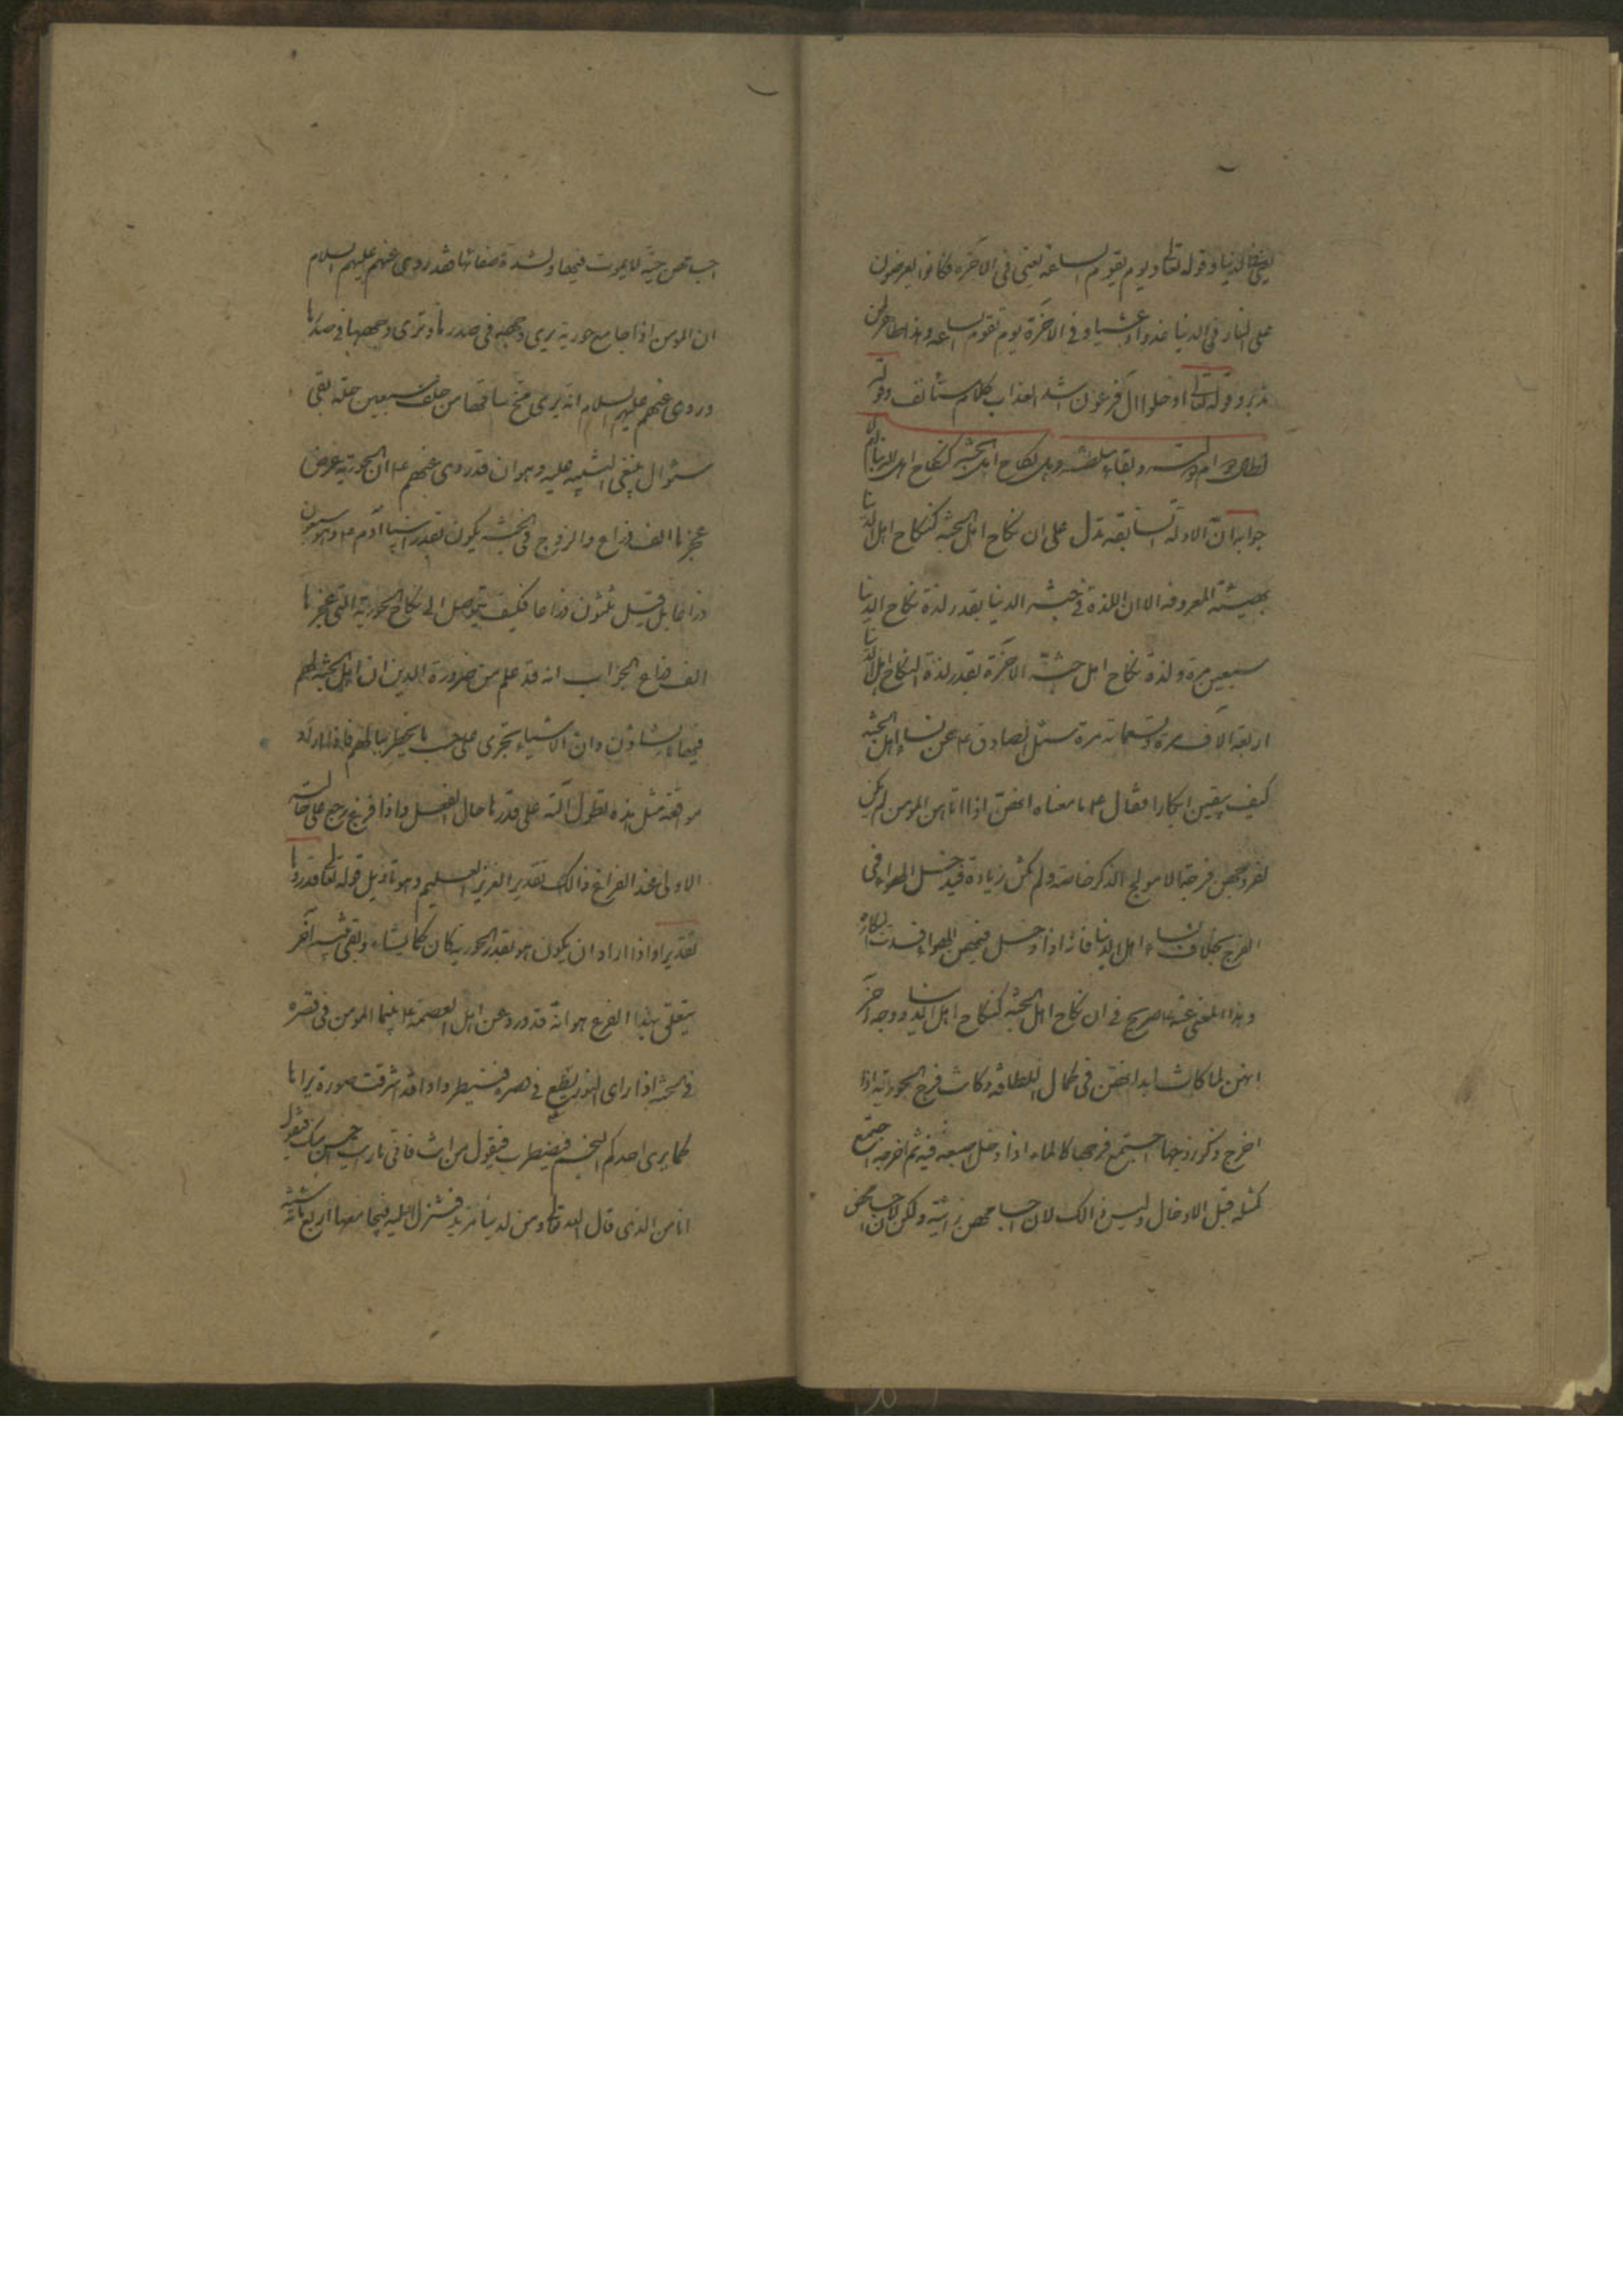 الدنيا وقوله تعالى ويوم يقوم الساعة يعني في الآخرة فكانوا يعرضون
على النار في الدنيا غدوا وعشيا وفي الآخرة يوم تقوم الساعة وهذا ظاهر لمن
تدبر وقوله تعالى ادخلوا ال فرعون اشد العذاب كلام مستأنف وقوله
وهل نكاح اهل الجنة كنكاح اهل الدنيا ام لا
جوابه ان الادلة السابقة تدل على ان نكاح اهل الجنة كنكاح اهل الدنيا
بهيئته المعروفة الا ان اللذة في جنة الدنيا بقدر لذة نكاح الدنيا
سبعين مرة ولذة نكاح اهل جنة الآخرة بقدر لذة النكاح اهل الدنيا
اربعة آلاف مرة وتسعمائة مرة سئل الصادق ع عن نساء اهل الجنة
كيف يبقين ابكارا فقال ع ما معناه انهن اذا اتاهن المومن لم يكن
لفروجهن فرجة الا مولج الذكر خاصة ولم تكن زيادة فيدخل الهواء في
الفرج بخلاف نساء اهل الدنيا فانه اذا دخل فيهن الهواء فسدت البكارة
وهذا المعنى عنه ع صريح في ان نكاح اهل الجنة كنكاح اهل الدنيا ووجه آخر
انهن لما كانت ابدانهن في كمال اللطافة وكانت فرج الحورية اذا
اخرج ذكره زوجها اجتمع فرجها كالماء اذا دخل اصبعه فيه ثم اخرجه اجتمع
كمثله قبل الادخال وليس ذالك لان اجسامهن ذائبة ولكن لان
اجسامهن حية لا يموت فيها ولشدة صفائها فقد روي عنهم عليهم السلام
ان المومن اذا جامع حورية يرى وجهه في صدرها وترى وجهها في صدره
وروي عنهم عليهم السلام انه يرى مخ ساقها من خلف سبعين حلة بقي
سئوال ينبغي التنبيه عليه وهو ان قد روي عنهم ع ان الحورية عرض
عجزها الف ذراع والزوج في الجنة يكون بقدر ابينا آدم ع وهو سبعون
ذراعا بل قيل ثلثون ذراعا فكيف يتوصل الى نكاح الحورية التي عجزها
الف ذراع الجواب انه قد علم من ضرورة الدين ان اهل الجنة لهم
فيها ما يشاؤن وان الاشياء تجري على حسب ما يخطر ببالهم فاذا اراد
مواقعة مثل هذه تطول آلته على قدرها حال الفعل واذا فرغ رجع على حالته
الاولى عند الفراغ ذالك تقدير العزيز العليم وهو تاويل قوله تعالى قدروها
تقديرا واذا اراد ان يكون هو بقدر الحورية كان كما يشاء وبقي شيء آخر
يتعلق بهذا الفرع هو انه قد ورد عن اهل العصمة ع بينما المومن في قصره
في الجنة اذا راى النور يسطع في قصره فينظر واذا قد اشرقت صورة يراها
كما يرى احدكم النجم فيضطرب فيقول من انت فاني ما رايت احسن منك فتقول
انا من الذي قال الله تعالى ومن لدينا مزيد فتنزل اليه فيجامعها اربعمائة سنة